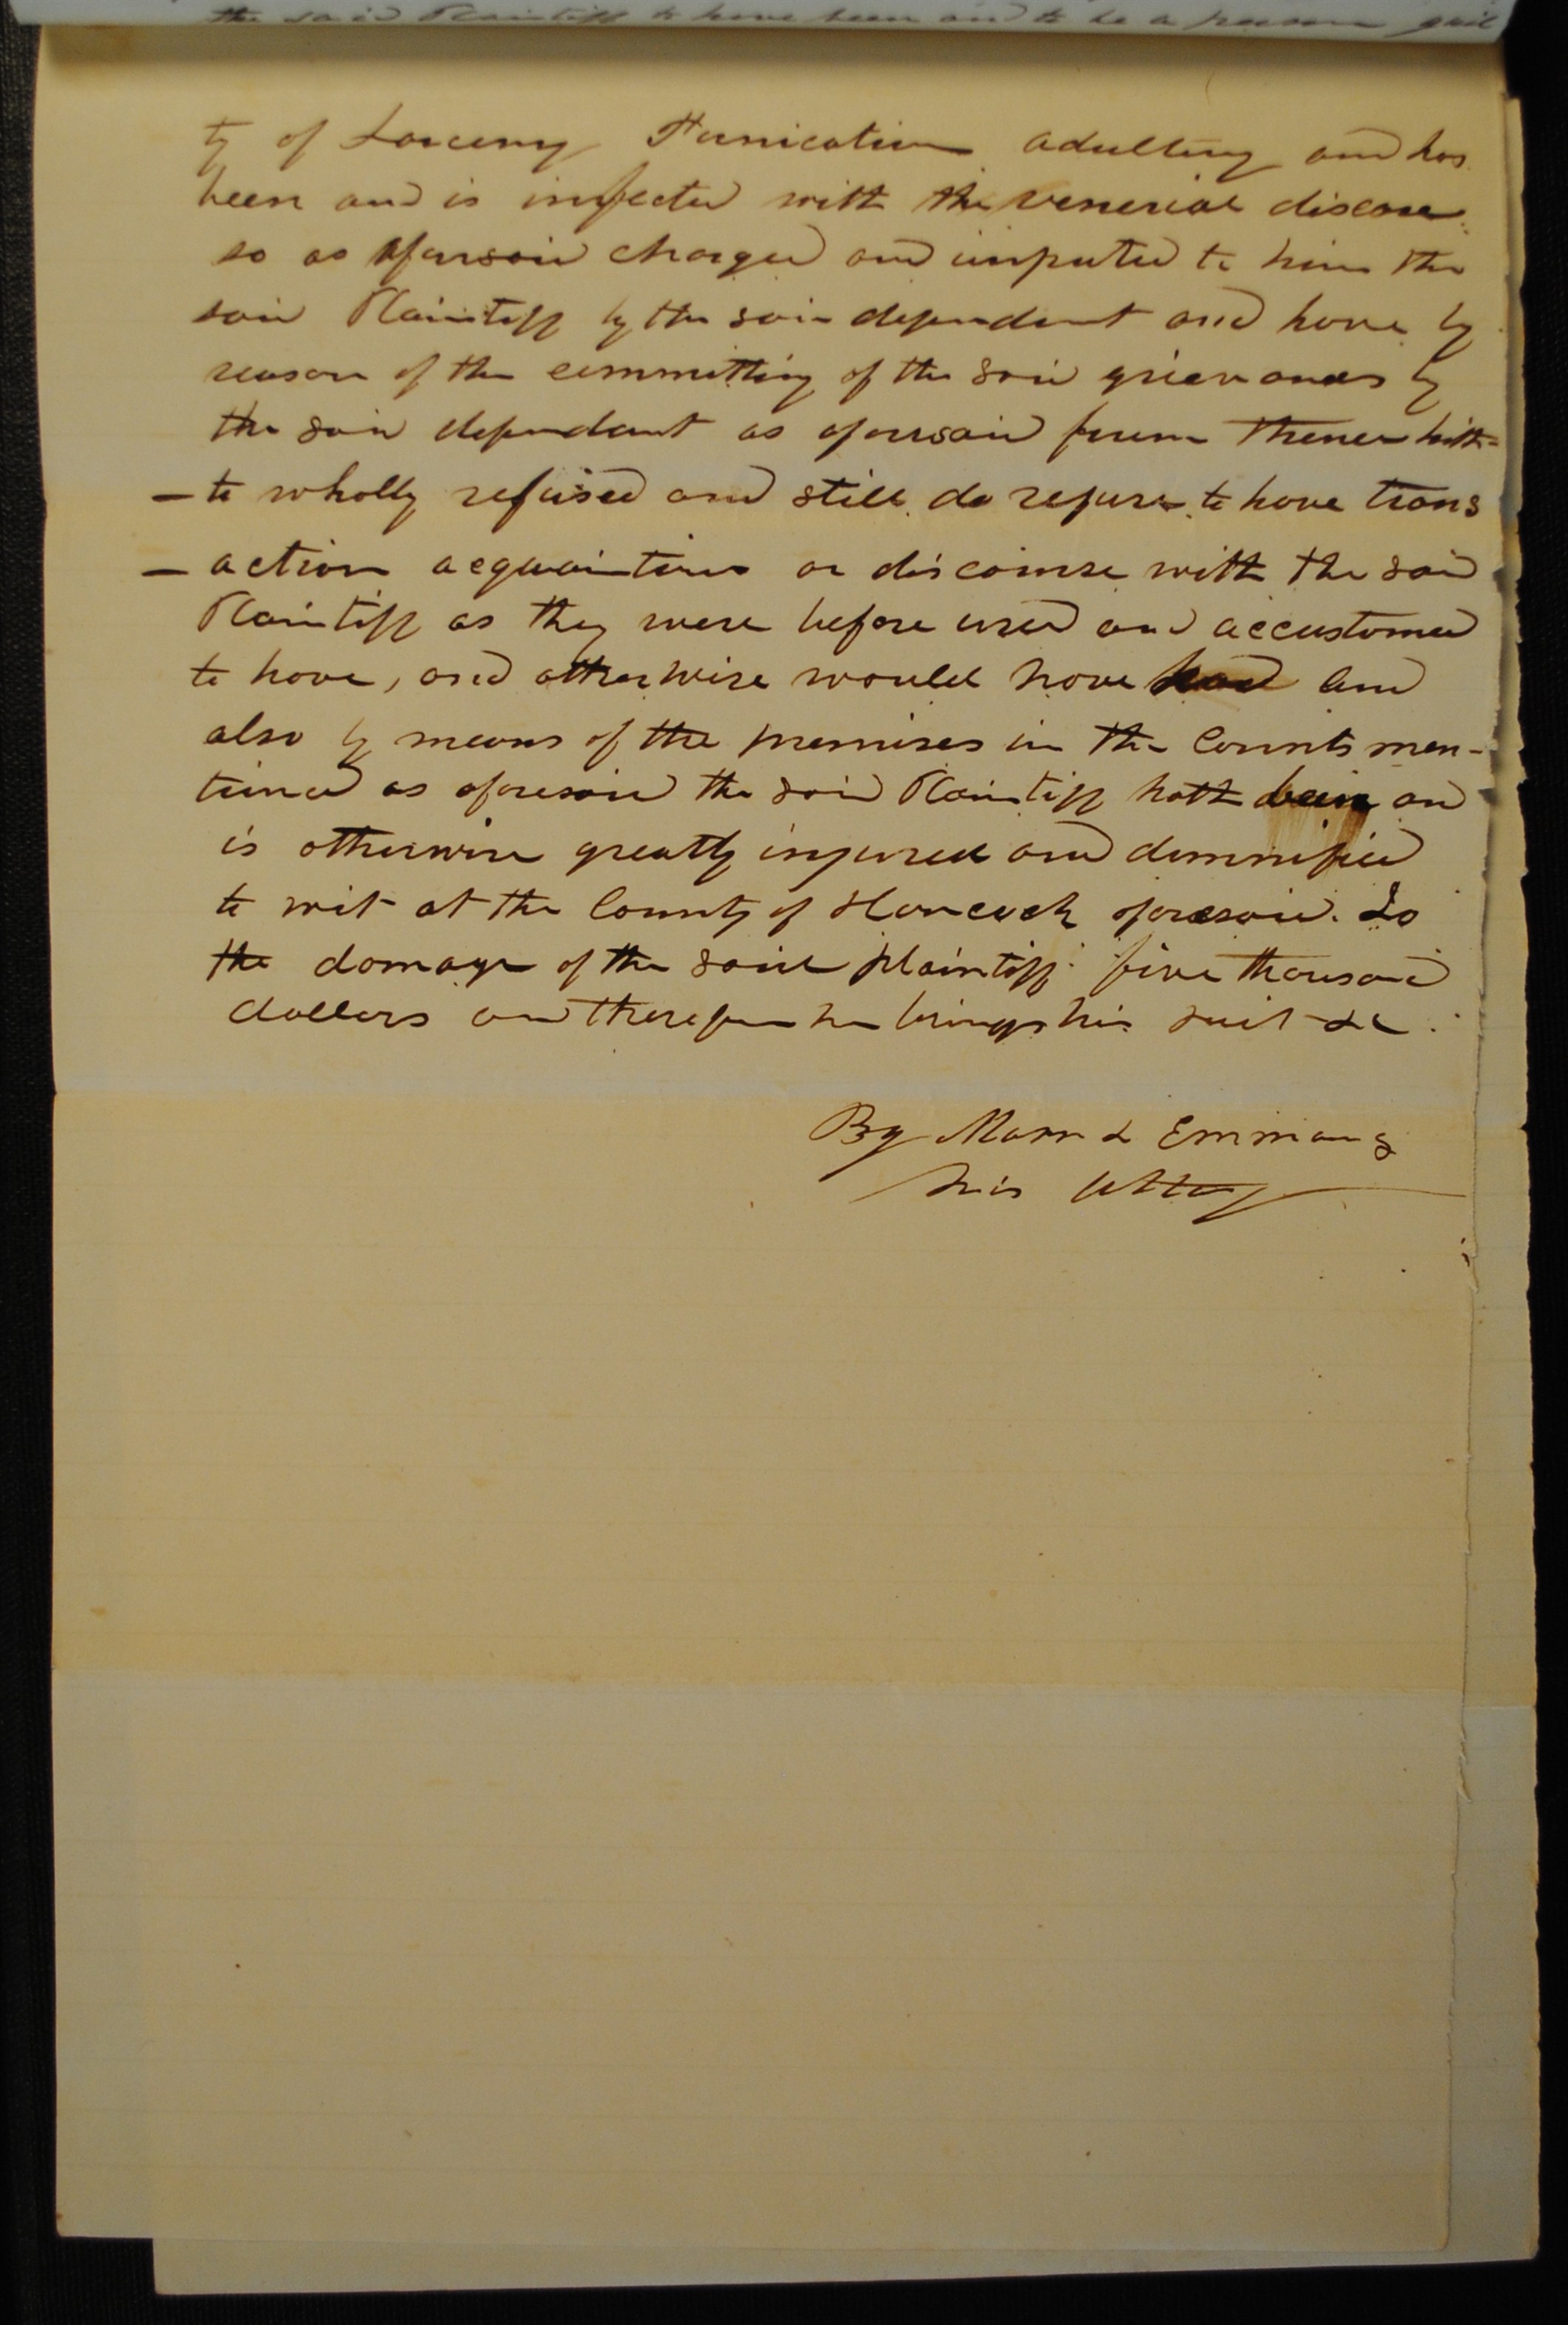 the said Plaintiff to have been and to be a person guil
ty of Larceny Fornication adultery and has
been and is infected with the venerial disease
so as aforesaid charged and imputed to him the
said Plaintiff by the said defendent and have by
reason of the committing of the said grievances by
the said defendant as aforesaid from thence hith-
-to wholly refused and still do refuse to have trans
-action acquaintince or discourse with the said
Plaintiff as they were before used and accustomed
to have, and otherwise would have had And
also by means of the premises in the Counts men-
tioned as aforesaid the said Plaintiff hath been and
is otherwise greatly injured and damnified
to wit at the County of Hancock aforesaid. To
the damage of the said plaintiff five thousand
dollars and therefore he brings his suit &c.
By Marr & Emmons
his Atty